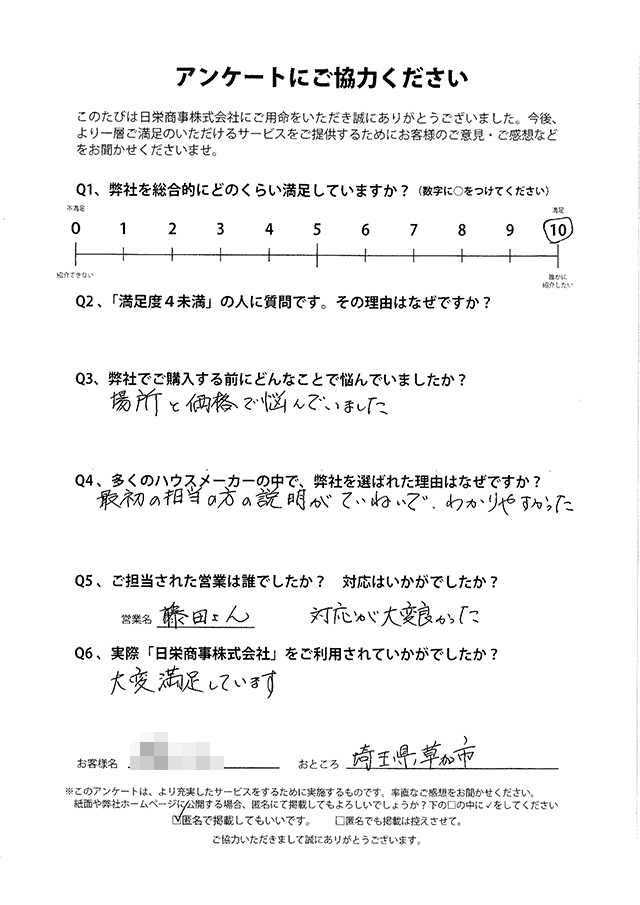 アンケートにご協力ください
このたびは日栄商事株式会社にご用命をいただき誠にありがとうございました。今後、
より一層ご満足のいただけるサービスをご提供するためにお客様のご意見・ご感想など
をお聞かせくださいませ。
Q1、弊社を総合的にどのくらい満足していますか？（数字に○をつけてください）
不満足 満足
0 1 2 3 4 5 6 7 8 9 10
紹介できない 誰かに
紹介したい
Q2、「満足度４未満」の人に質問です。その理由はなぜですか？
Q3、弊社でご購入する前にどんなことで悩んでいましたか？
場所と価格で悩んでいました
Q4、多くのハウスメーカーの中で、弊社を選ばれた理由はなぜですか？
最初の担当の方の説明がていねいで、わかりやすかった
Q5、ご担当された営業は誰でしたか？ 対応はいかがでしたか？
営業名 藤田さん 対応が大変良かった
Q6、実際「日栄商事株式会社」をご利用されていかがでしたか？
大変満足しています
お客様名 おところ 埼玉県草加市
※このアンケートは、より充実したサービスをするために実施するものです。率直なご感想をお聞かせください。
紙面や弊社ホームページに公開する場合、匿名にて掲載してもよろしいでしょうか？下の□の中に✓をしてください
☑匿名で掲載してもいいです。 □匿名でも掲載は控えさせて。
ご協力いただきまして誠にありがとうございます。